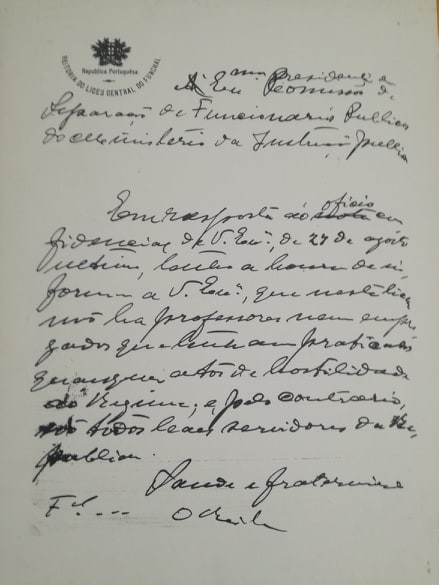 Republica Portuguesa
REITORIA DO LICEU CENTRAL DO FUNCHAL
Presidente da
Comissão de
Separação de Funcionarios Publicos
do Ministério da Instrução Publica
Em resposta ao officio con
fidencial de V. Exª, de 27 de agosto
ultimo, tenho a honra de in
formar a V. Exª, que neste liceu
não ha professores nem empre
gados que tenham praticado
quaisquer actos de hostilidade
ao Regime; e, pelo contrario,
são todos leaes servidores da Re
publica.
Saude e fraternidade
F.al ...
O Reitor